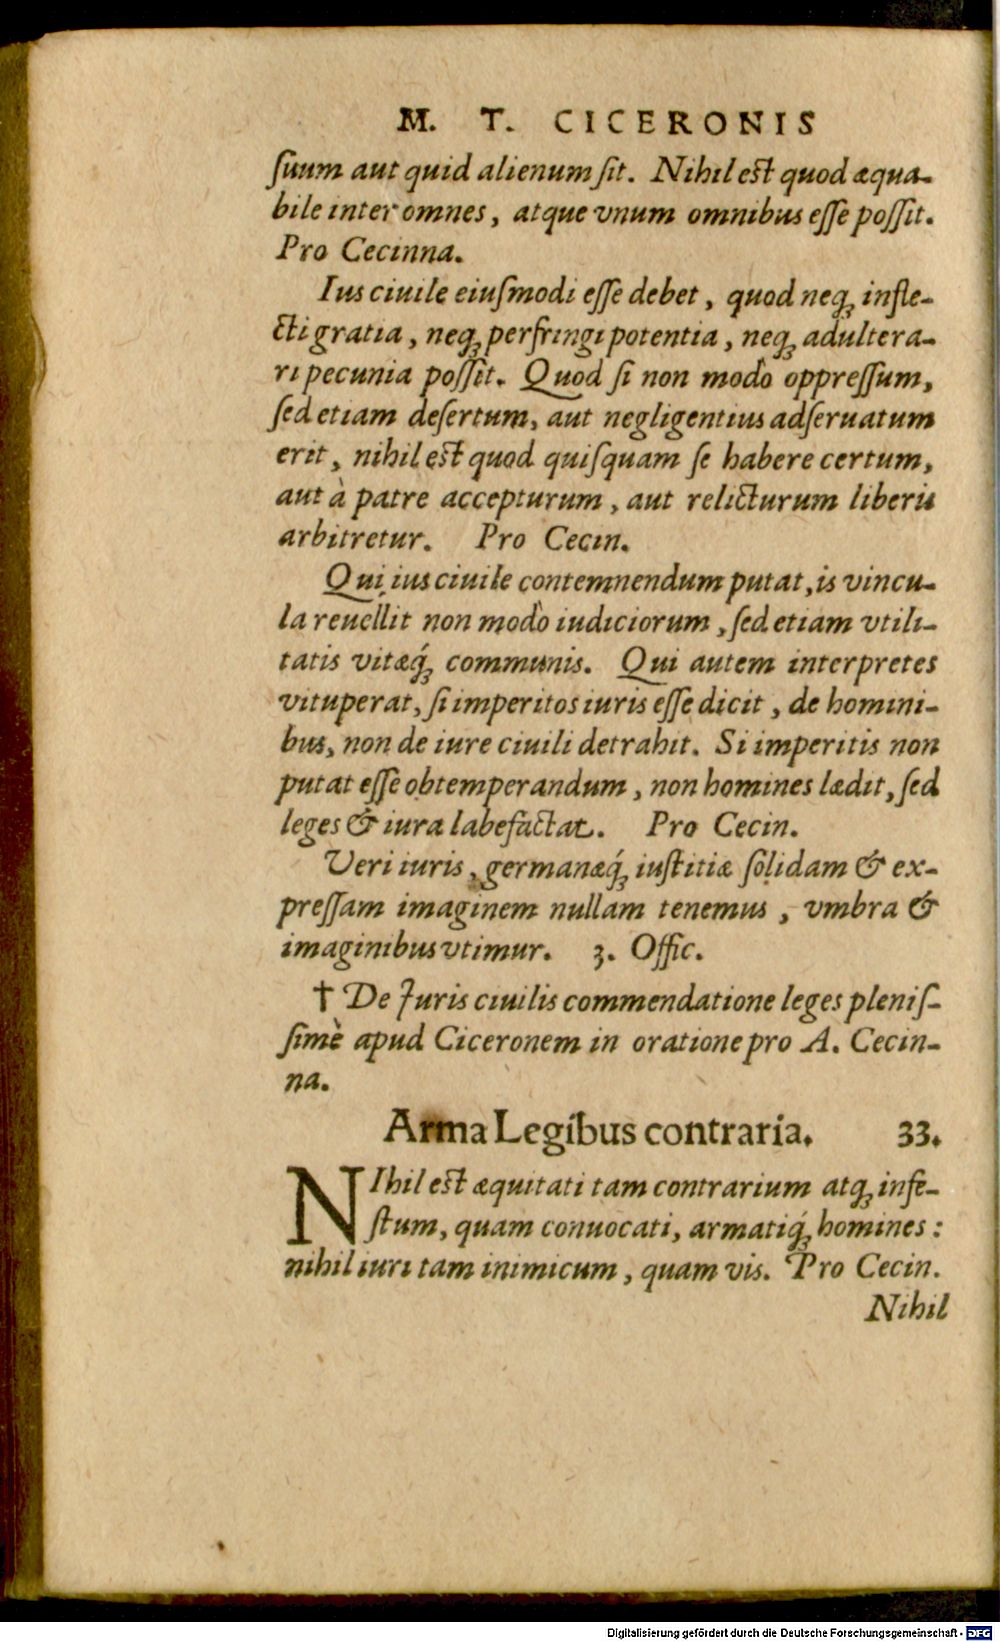 M. T. CICERONIS
ſuum aut quid alienum ſit. Nihil est quod æqua-
bile inter omnes, atque vnum omnibus eſſe poſſit.
Pro Cecinna.
Ius ciuile eiuſmodi eſſe debet, quod neqꝫ infle-
cti gratia, neqꝫ perfringi potentia, neqꝫ adultera-
ri pecunia poſſit. Quod ſi non modò oppreſſum,
ſed etiam deſertum, aut negligentius adſeruatum
erit, nihil est quod quiſquam ſe habere certum,
aut à patre accepturum, aut relicturum liberis
arbitretur. Pro Cecin.
Qui ius ciuile contemnendum putat, is vincu-
la reuellit non modò iudiciorum, ſed etiam vtili-
tatis vitæq́ꝫ communis. Qui autem interpretes
vituperat, ſi imperitos iuris eſſe dicit, de homini-
bus, non de iure ciuili detrahit. Si imperitis non
putat eſſe obtemperandum, non homines lædit, ſed
leges & iura labefactat. Pro Cecin.
Veri iuris, germanæq́ꝫ iuſtitiæ ſolidam & ex-
preſſam imaginem nullam tenemus, vmbra &
imaginibus vtimur. 3. Offic.
† De Juris ciuilis commendatione leges pleniſ-
ſimè apud Ciceronem in oratione pro A. Cecin-
na.
Arma Legibus contraria. 33.
NIhil est æquitati tam contrarium atqꝫ infe-
ſtum, quam conuocati, armatiq́ꝫ homines:
nihil iuri tam inimicum, quam vis. Pro Cecin.
Nihil
Digitalisierung gefördert durch die Deutsche Forschungsgemeinschaft - DFG